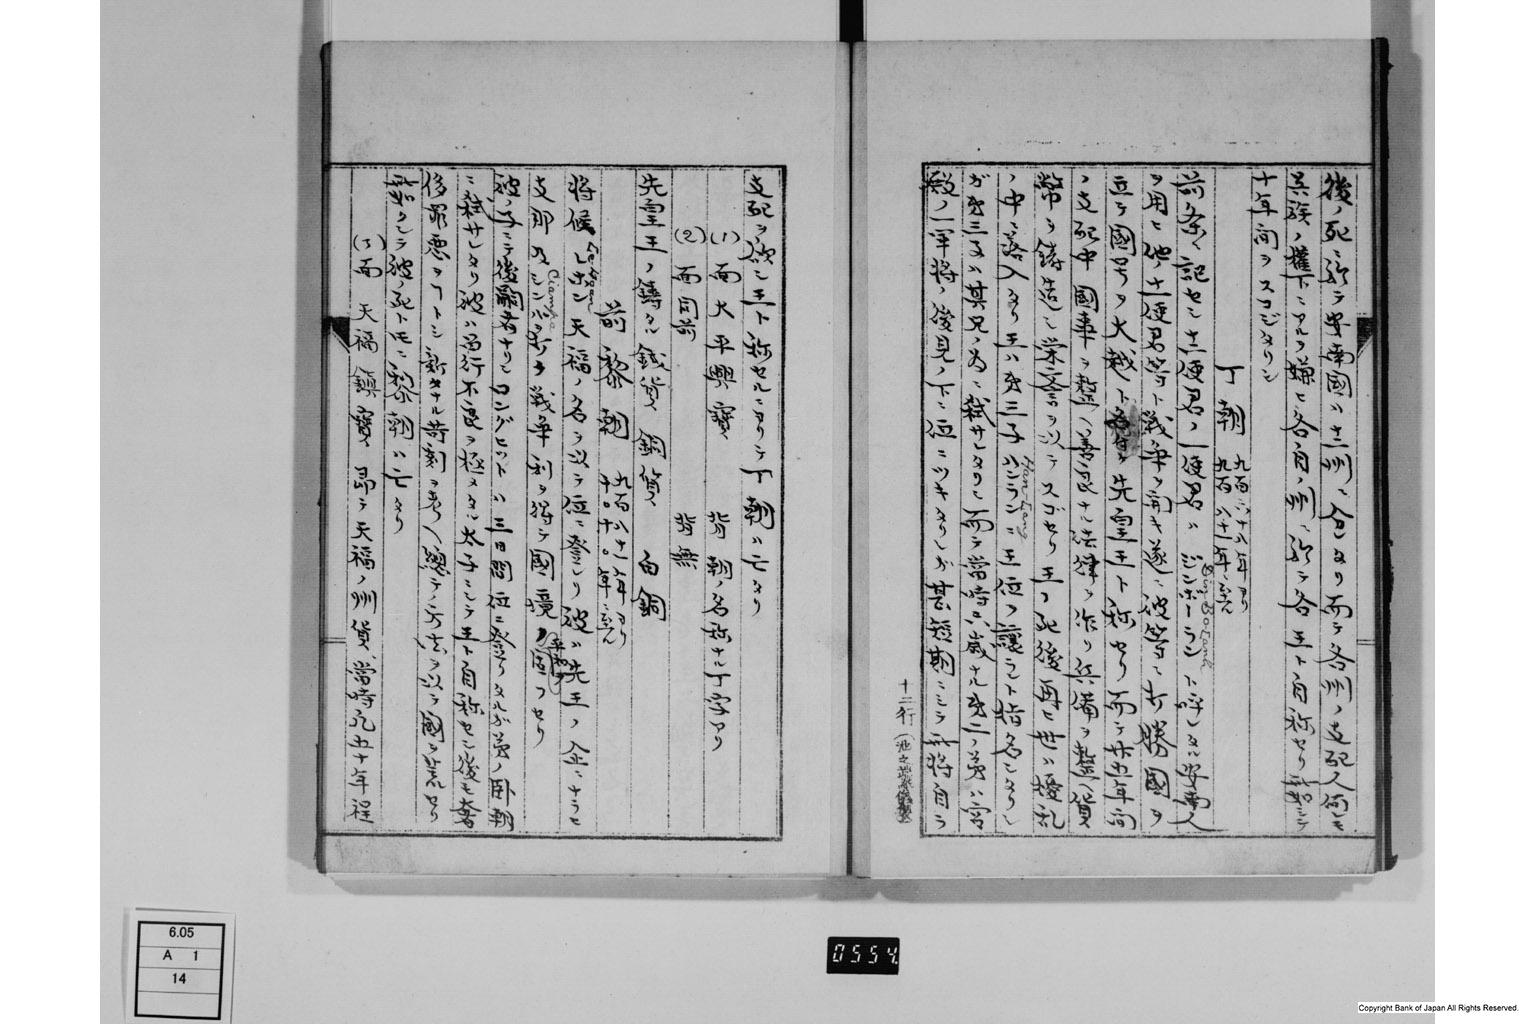 後ノ死ニ於テ安南國ハ十二州ニ分レタリ而テ各州ノ支配人何レモ
異族ノ權下ニアルヲ嫌ヒ各自ノ州ニ於テ各王ト自称セリ
十年間ヲスゴシタリシ
丁朝 九百六十八年ヨリ 九百八十一年ニ至ル
前条ニ記セシ十二使君ノ一使君ハ シンボーラン Din-Bo-Lanh ト許シタル安南人
ヲ用ヒ他ノ十一使君等ト戦争ヲ開キ遂ニ彼等ニ打勝國ヲ
立テ國号ヲ大越ト 先皇王ト称セリ而シテ廿五年間
ノ支配中國事ヲ整ヘ善良ナル法律ヲ作リ兵備ヲ整ヘ貨
幣ヲ鋳造シ栄誉ヲ以テスゴセリ王ノ死後再ヒ世ハ擾乱
ノ中ニ落入タリ王ハ其三子 ハンラン Han-Lang ニ王位ヲ讓ラント指名シタリシ
ガ其三子ハ其兄ノ為ニ弑サレタリシ而テ當時六歳ナル其二ノ男ハ宮
殿ノ一宰将ノ後見ノ下ニ位ニツキタリシガ甚短期ニシテ宰将自ラ
十二行
支配ヲ欲シ王ト称セルニヨリテ丁朝ハ亡タリ
(1) 面 大平興寶 背 朝ノ名称ナル丁字アリ
(2) 面同前 背無
先皇王ノ鋳タル 錢貨 銅貨 白銅
前黎朝 九百八十一年ヨリ 千〇十〇年ニ至ル
将侯 レホン Le-Hoan 天福ノ名ヲ以テ位ニ登レリ彼ハ先王ノ企ニナラヒ
支那及シンパ Ciampa ヲ打チ戦争利ヲ得テ國境ノ平和ヲ固フセリ
彼ノ子ニテ後嗣者ナリシロングヒットハ三日間位ニ登リタルガ弟ノ臥朝
ニ弑サレタリ彼ハ品行不良ヲ極メタル太子ニシテ王ト自称セシ後モ奢
侈罪悪ヲコトトシ新キナル苛刻ヲ考ヘ總テノ方法ヲ以テ國ヲ荒セリ
シテ彼ノ死ト共ニ黎朝ハ亡タリ
(3) 面 天福鎮寶 即チ天福ノ州貨當時凡五十年程
6.05
A 1
14
0554
Copyright Bank of Japan All Rights Reserved.